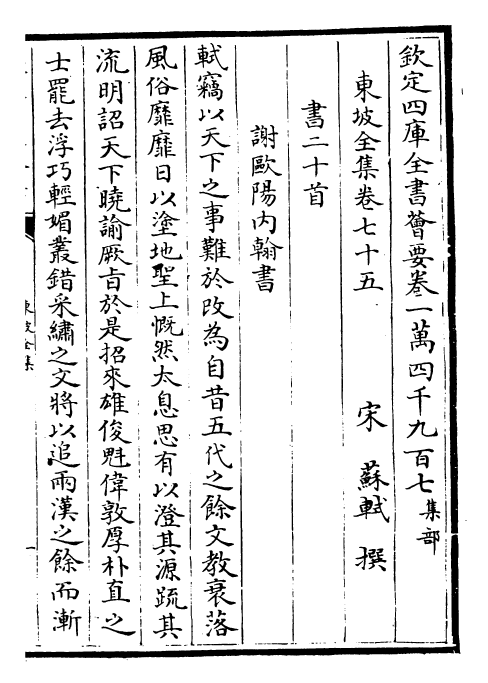 欽定四庫全書薈要卷一萬四千九百七集部
東坡全集卷七十五
宋蘇軾撰
書二十首
謝歐陽内翰書
軾竊以天下之事難於改為自昔五代之餘文教衰落
風俗靡靡日以塗地聖上慨然太息思有以澄其源疏其
流明詔天下曉諭厥旨於是招來雄俊魁偉敦厚朴直之
士罷去浮巧輕媚叢錯采繡之文將以追兩漢之餘而漸
東坡全集
一